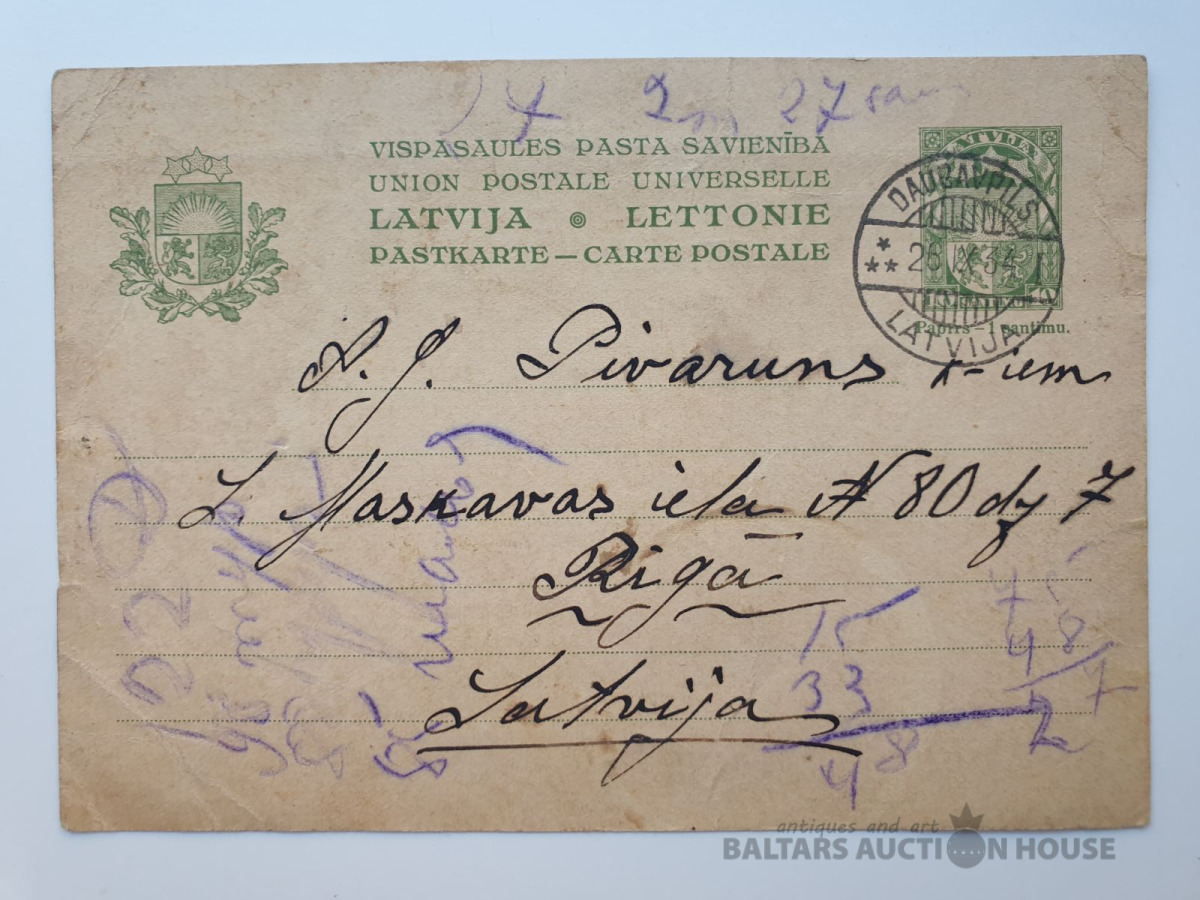 2 m 27
VISPASAULES PASTA SAVIENĪBA
UNION POSTALE UNIVERSELLE
LATVIJA LETTONIE
PASTKARTE — CARTE POSTALE
LATVIJA
DAUGAVPILS
26 IX 34 1
LATVIJA
Papīrs – 1 santimu.
Pivaruns k-iem
L. Maskavas iela № 80 dz 7
Rīgā
Latvija
15
33
48
antiques and art
BALTARS AUCTION HOUSE